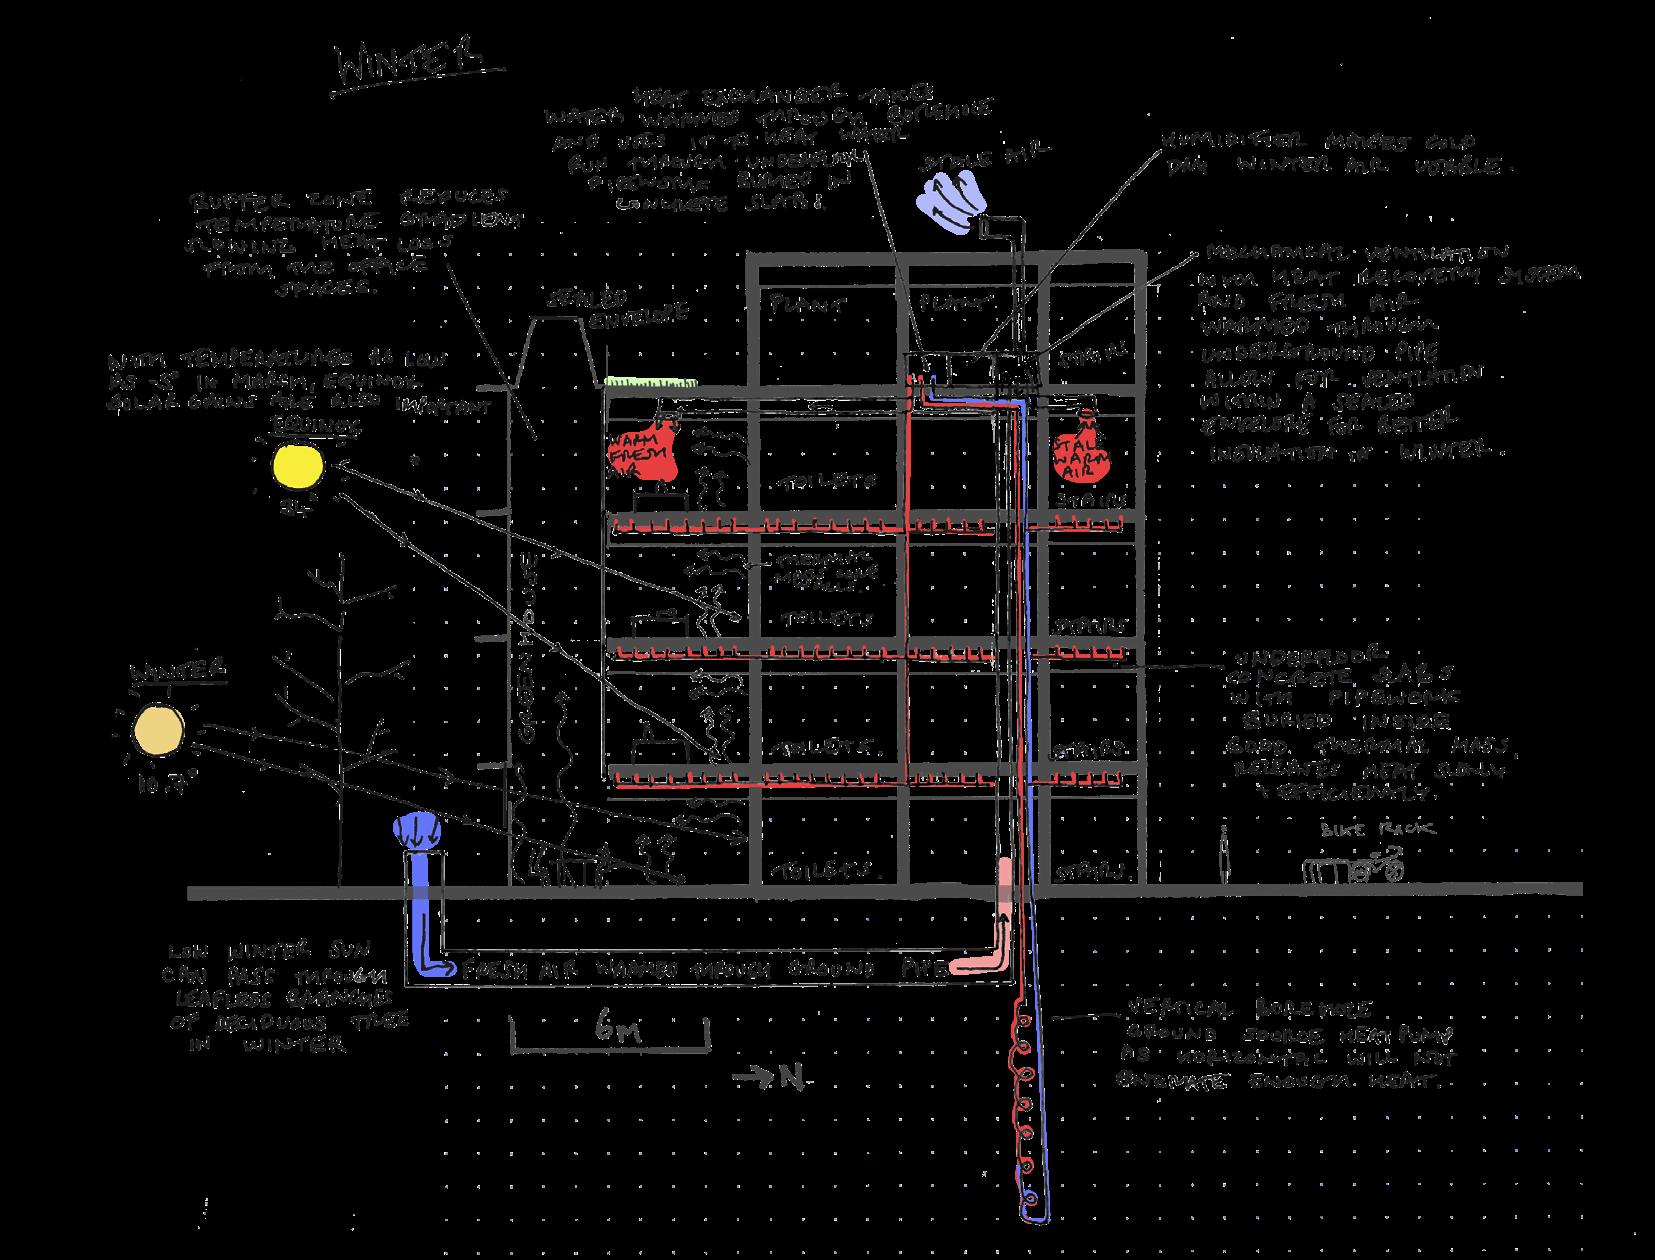 WINTER
HEAT EXCHANGER TAKES
WATER WARMED THROUGH BOREHOLE
AND USES IT TO HEAT WATER
RUN THROUGH UNDERFLOOR
PIPEWORK BURIED IN
CONCRETE SLABS.
STALE AIR
HUMIDIFIER MAKES COLD
DRY WINTER AIR USABLE.
BUFFER ZONE REDUCES
TEMPERATURE GRADIENT
SLOWING HEAT LOSS
FROM THE OFFICE
SPACES.
SEALED
ENVELOPE
PLANT
PLANT
STAIRS
MECHANICAL VENTILATION
WITH HEAT RECOVERY SYSTEM
AND FRESH AIR
WARMED THROUGH
UNDERGROUND PIPE
ALLOW FOR VENTILATION
WITHIN A SEALED
ENVELOPE FOR BETTER
INSULATION IN WINTER.
WITH TEMPERATURES AS LOW
AS -5° IN MARCH, EQUINOX
SOLAR GAINS ARE ALSO IMPORTANT
EQUINOX
34°
WARM
FRESH
AIR
TOILETS
STALE
WARM
AIR
STAIRS
THERMAL
MASS CORE
WALLS.
TOILETS
STAIRS
GREEN HOUSE
WINTER
10.7°
UNDERFLOOR
CONCRETE SLABS
WITH PIPEWORK
BURIED INSIDE
GOOD THERMAL MASS,
RELEASES HEAT SLOWLY
+ EFFICIENTLY.
TOILETS.
STAIRS
BIKE RACK
TOILETS.
STAIRS.
LOW WINTER SUN
CAN PASS THROUGH
LEAFLESS BRANCHES
OF DECIDUOUS TREE
IN WINTER
FRESH AIR WARMED THROUGH GROUND PIPE
6m
→N
VERTICAL BOREHOLE
GROUND SOURCE HEAT PUMP
AS HORIZONTAL WILL NOT
GENERATE ENOUGH HEAT.